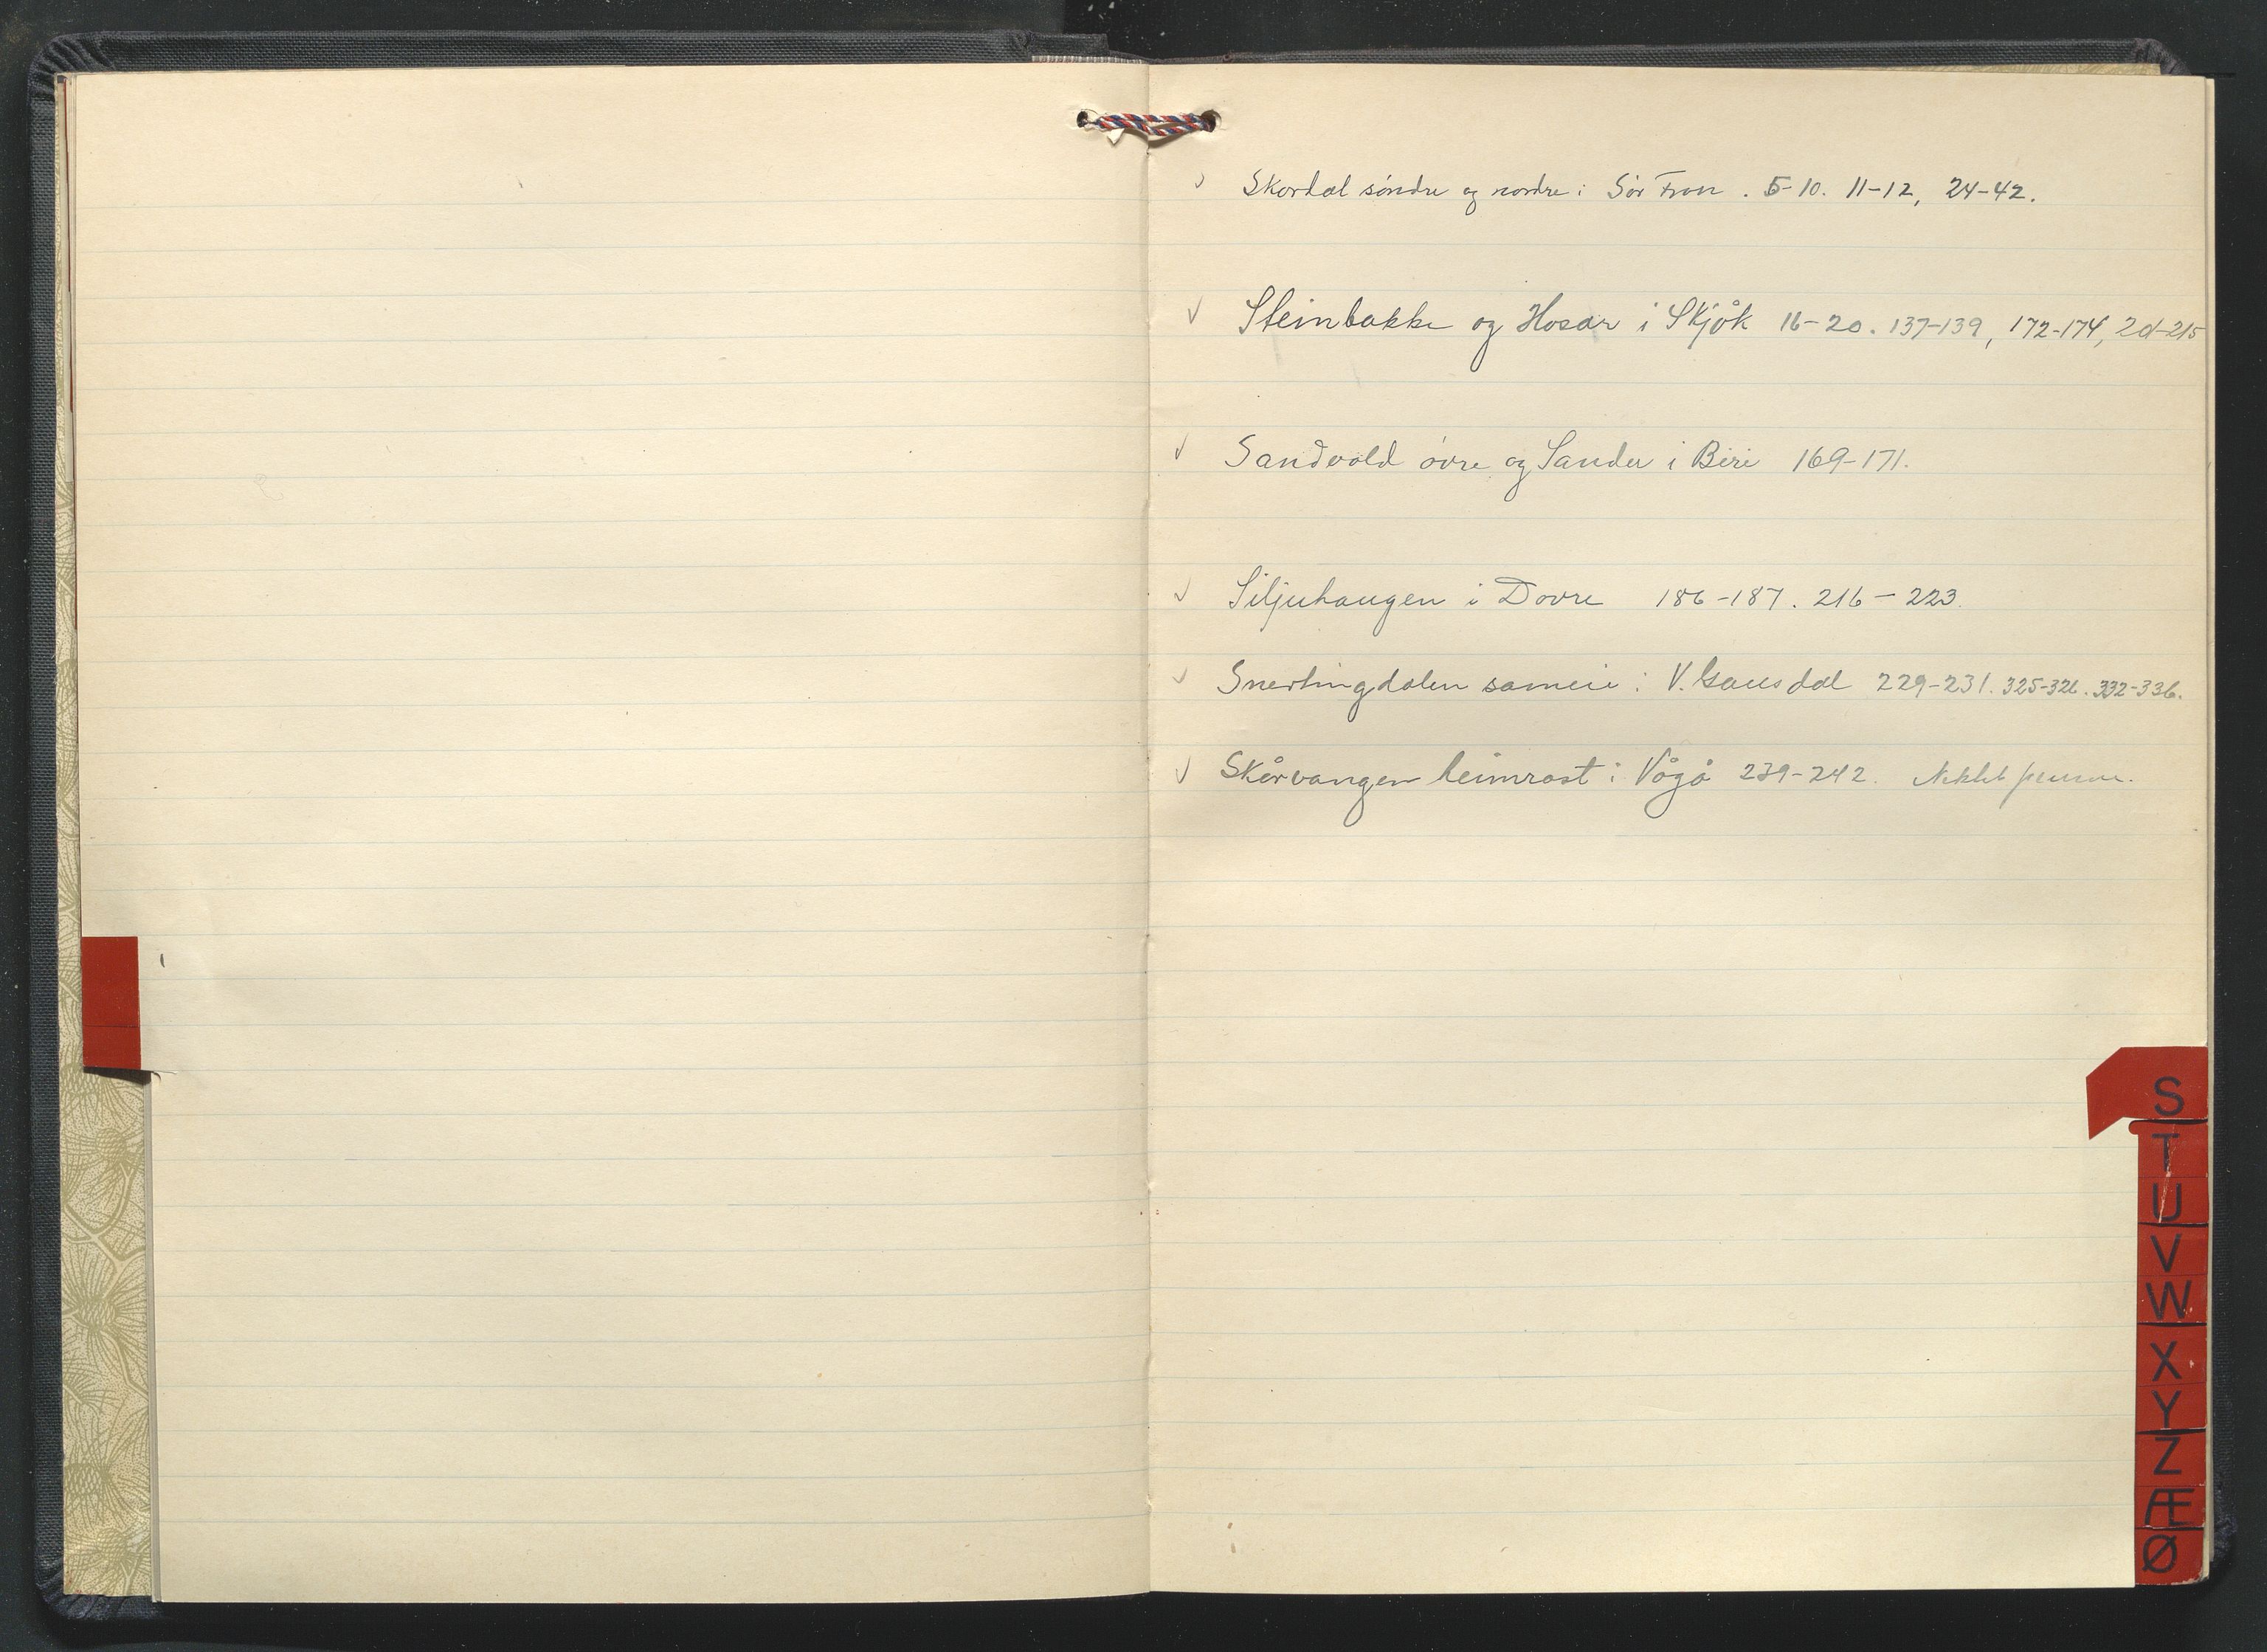 Skordal søndre og nordre i Sør Fron. 5-10. 11-12, 24-42.
Steinbakke og Hosar i Skjåk 16-20. 137-139, 172-174, 215
Sandvold øvre og Sander i Biri 169-171.
Siljuhaugen i Dovre 186-187. 216-223.
Snertingdalen sameie i V. Gausdal 229-231. 325-326. 332-336.
Skårvangen heimrast i Vågå 239-242.
S
T
U
V
W
X
Y
Z
Æ
Ø